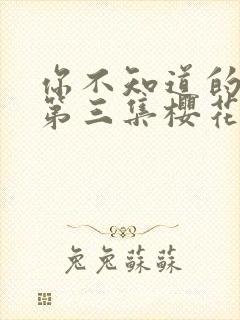 你不知道的
第三集樱花
兔兔蘇蘇